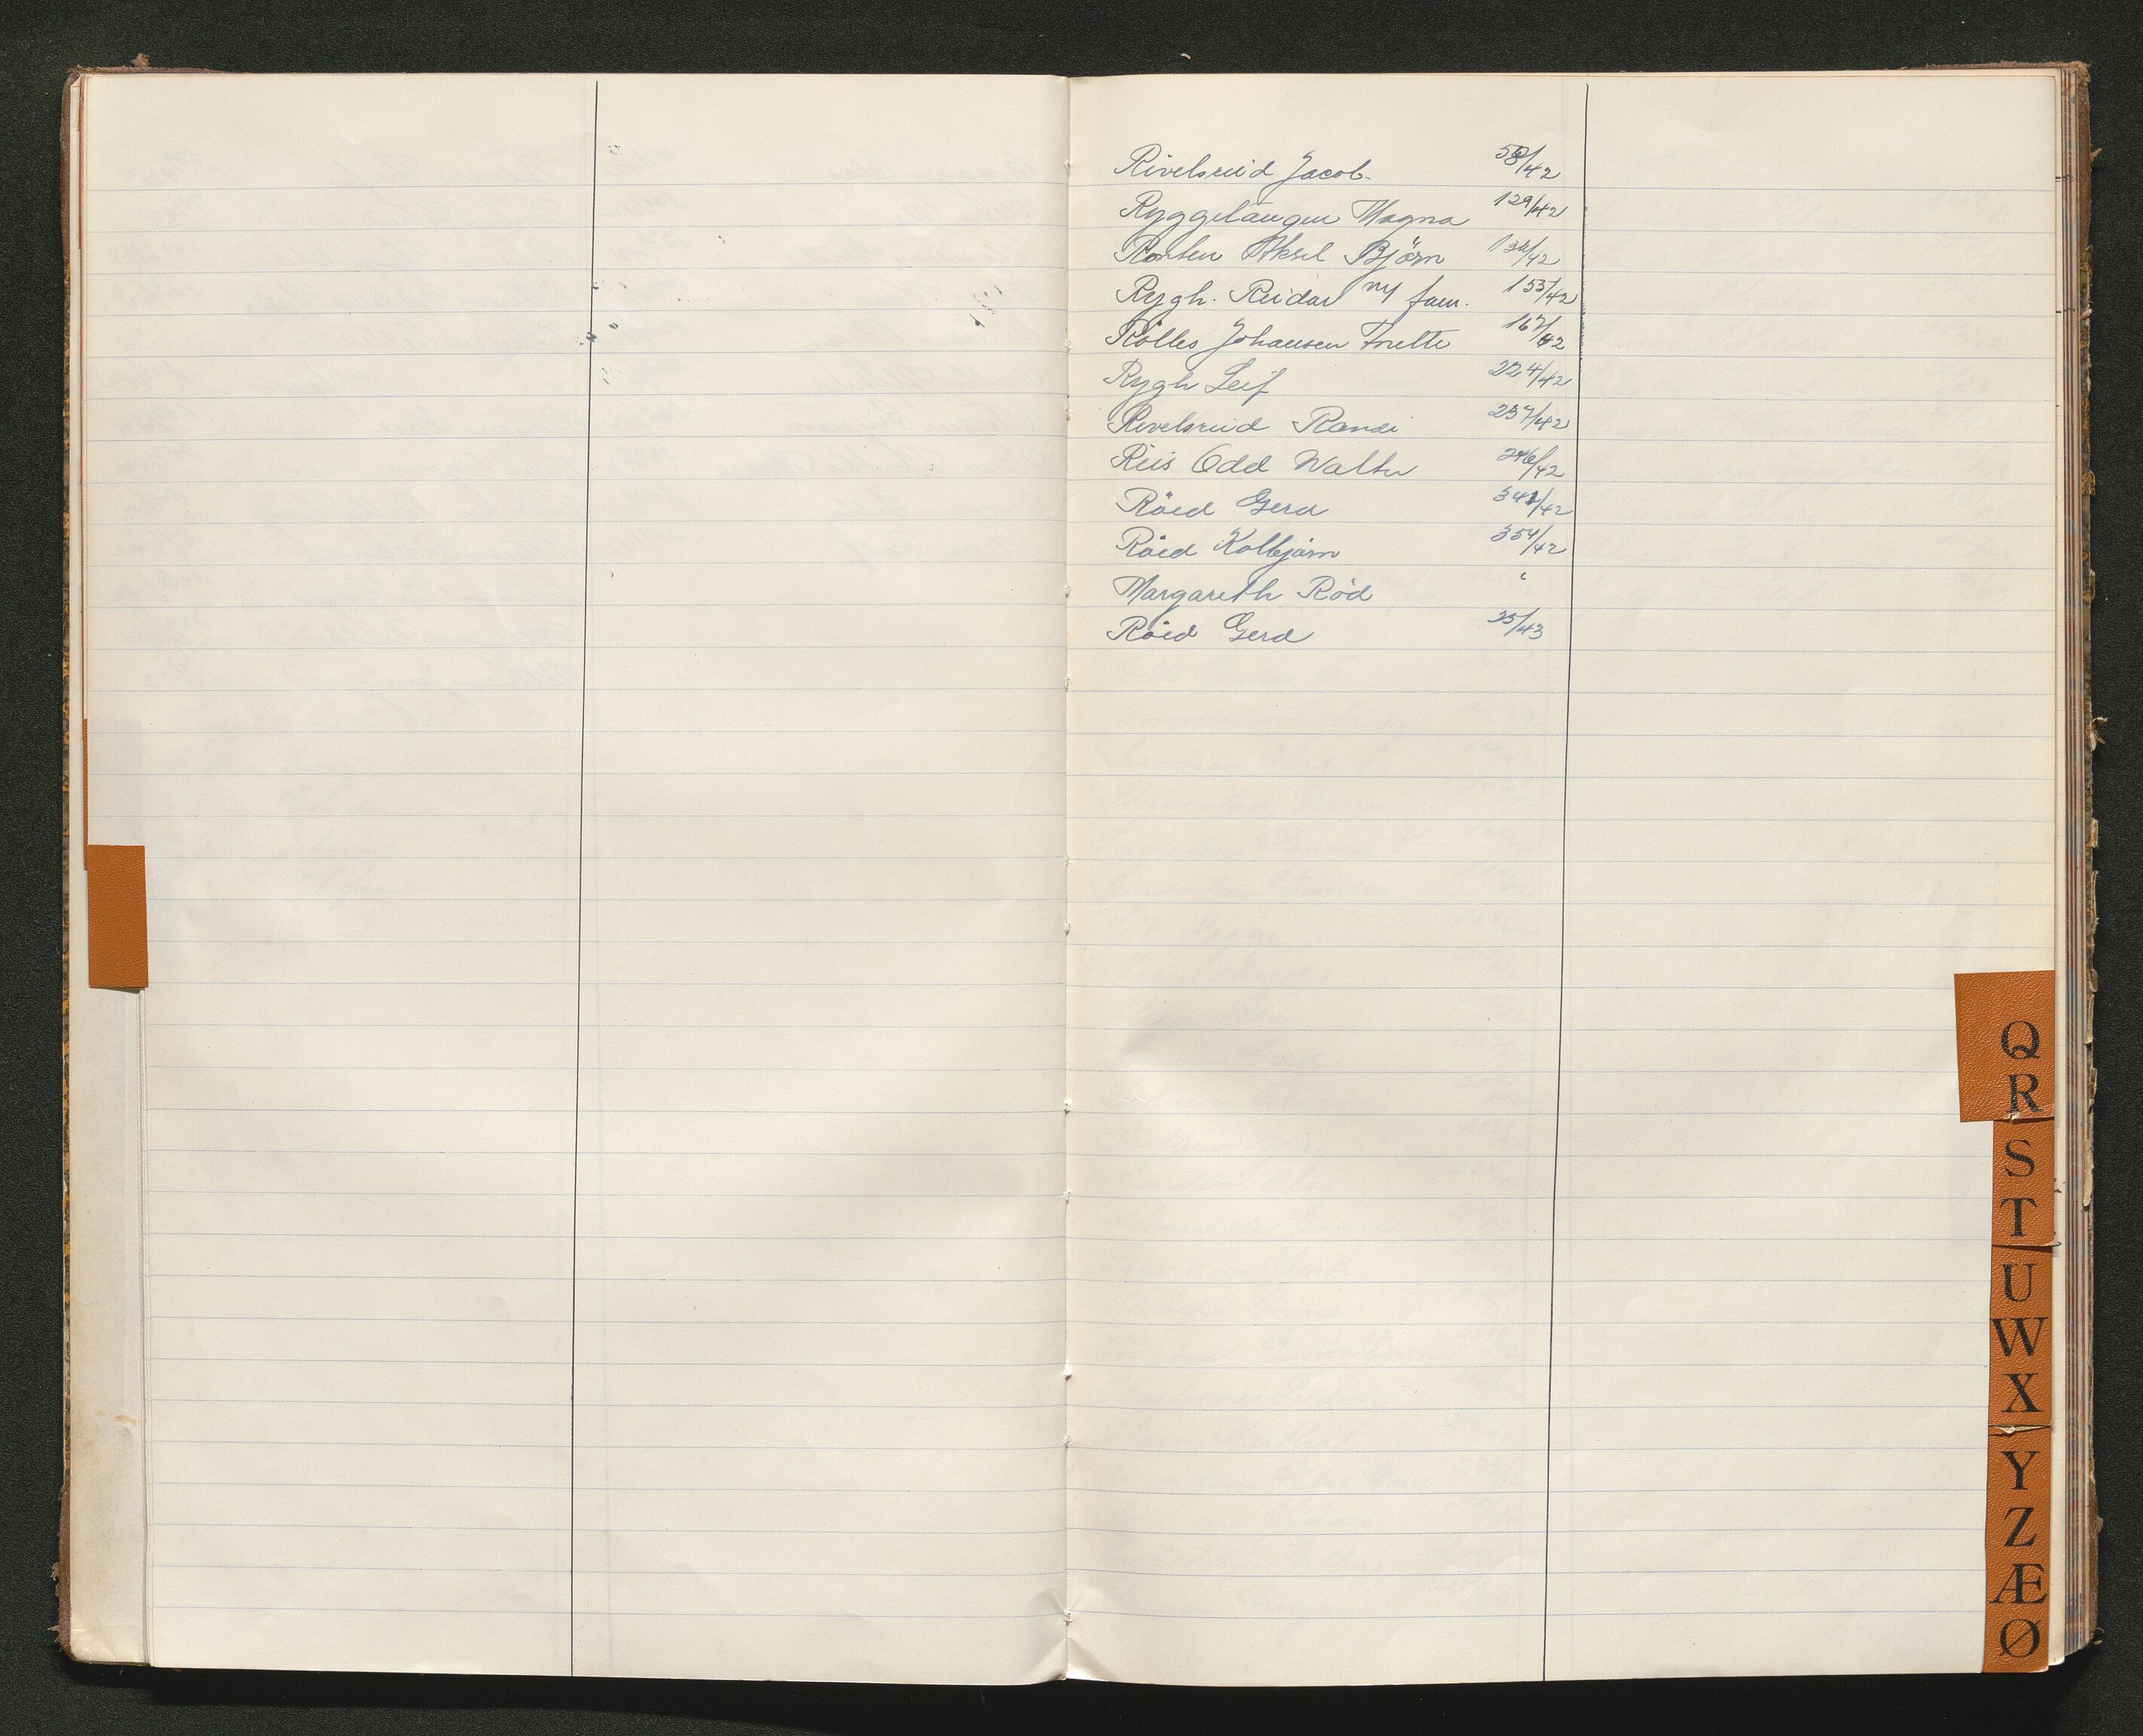 Rivelsrud Jacob. 58/42
Ryggelangen Magna 129/42
Aksel Björn 134/42
Rygh. Reidar m/ fam. 153/42
Rolles Johansen 167/42
Rygh Leif 224/42
Rivelsrud Randi 237/42
Reis Odd Walter 246/42
Röed Gerd /42
Röed Kolbjørn 354/42
Margareth Röd "
Röed Gerd 25/43
Q
R
S
T
U
W
X
Y
Z
Æ
Ø